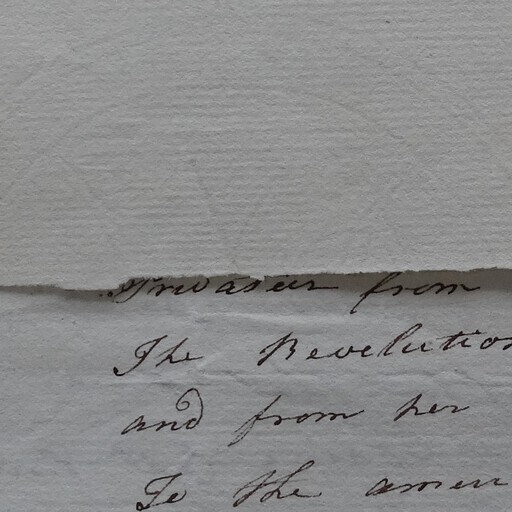 from
The Revolution
and from her
To the amer